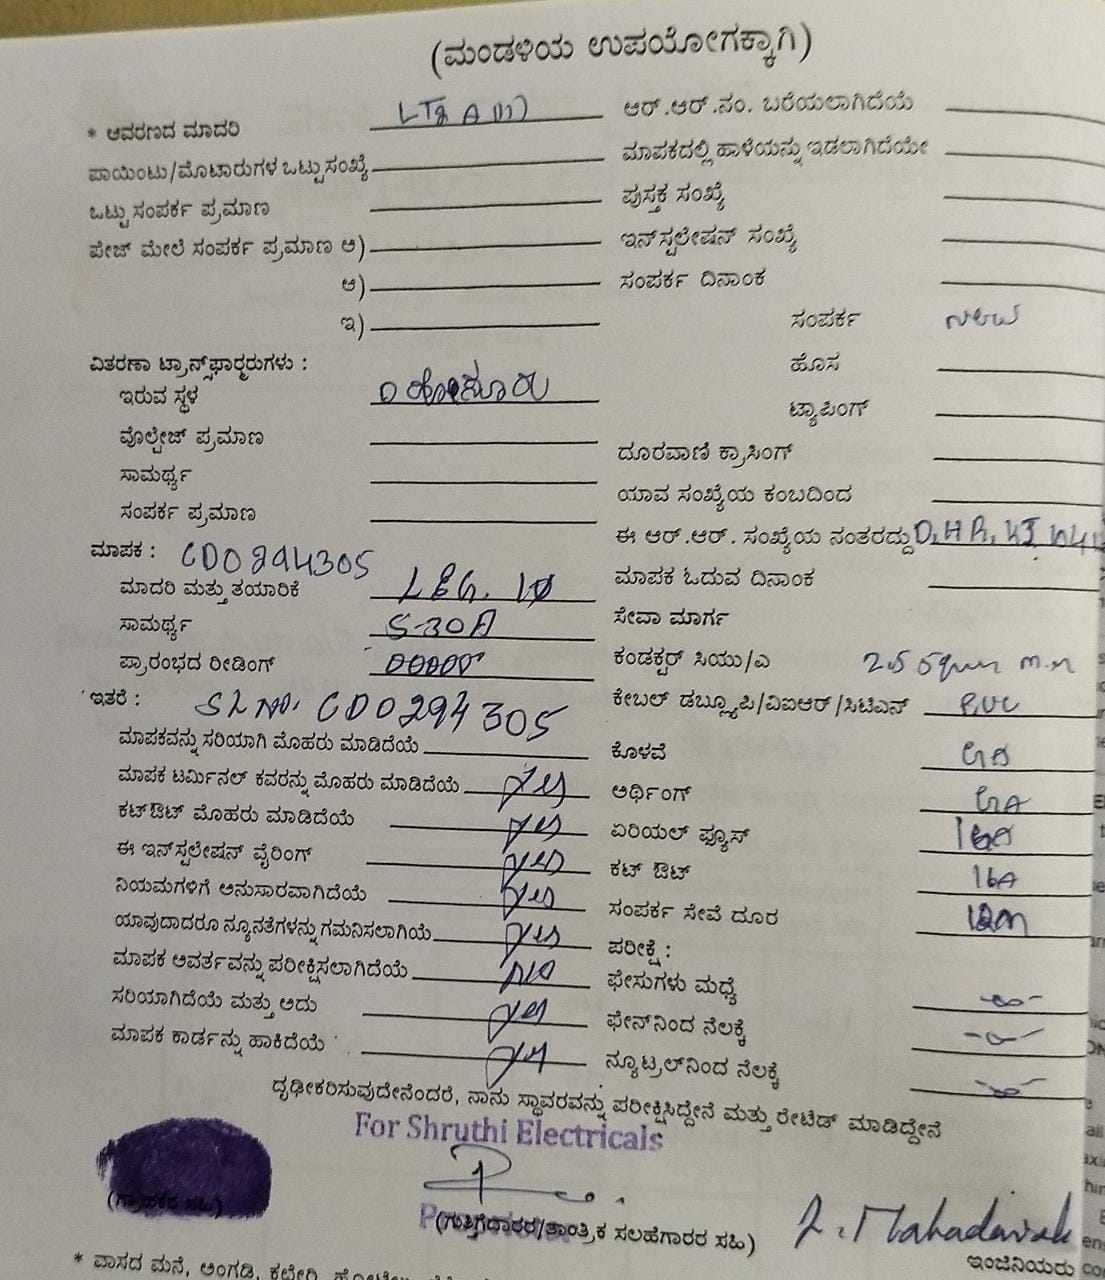 (ಮಂಡಳಿಯ ಉಪಯೋಗಕ್ಕಾಗಿ)
* ಆವರಣದ ಮಾದರಿ
ಪಾಯಿಂಟು/ಮೊಟಾರುಗಳ ಒಟ್ಟು ಸಂಖ್ಯೆ
ಒಟ್ಟು ಸಂಪರ್ಕ ಪ್ರಮಾಣ
ಪೇಜ್ ಮೇಲೆ ಸಂಪರ್ಕ ಪ್ರಮಾಣ ಅ)
ಆ)
ಇ)
ವಿತರಣಾ ಟ್ರಾನ್ಸ್‌ಫಾರ್ಮರುಗಳು :
ಇರುವ ಸ್ಥಳ
ವೊಲ್ಟೇಜ್ ಪ್ರಮಾಣ
ಸಾಮರ್ಥ್ಯ
ಸಂಪರ್ಕ ಪ್ರಮಾಣ
ಮಾಪಕ : CD0294305
ಮಾದರಿ ಮತ್ತು ತಯಾರಿಕೆ L&G. 1Ø
ಸಾಮರ್ಥ್ಯ 5-30A
ಪ್ರಾರಂಭದ ರೀಡಿಂಗ್
ಇತರೆ : SL NO. CD0294305
ಮಾಪಕವನ್ನು ಸರಿಯಾಗಿ ಮೊಹರು ಮಾಡಿದೆಯೆ
ಮಾಪಕ ಟರ್ಮಿನಲ್ ಕವರನ್ನು ಮೊಹರು ಮಾಡಿದೆಯೆ yes
ಕಟ್‌ಔಟ್ ಮೊಹರು ಮಾಡಿದೆಯೆ yes
ಈ ಇನ್‌ಸ್ಟಲೇಷನ್ ವೈರಿಂಗ್ yes
ನಿಯಮಗಳಿಗೆ ಅನುಸಾರವಾಗಿದೆಯೆ yes
ಯಾವುದಾದರೂ ನ್ಯೂನತೆಗಳನ್ನು ಗಮನಿಸಲಾಗಿಯೆ yes
ಮಾಪಕ ಅವರ್ತವನ್ನು ಪರೀಕ್ಷಿಸಲಾಗಿದೆಯೆ No
ಸರಿಯಾಗಿದೆಯೆ ಮತ್ತು ಅದು yes
ಮಾಪಕ ಕಾರ್ಡನ್ನು ಹಾಕಿದೆಯೆ yes
ಆರ್.ಆರ್.ನಂ. ಬರೆಯಲಾಗಿದೆಯೆ
ಮಾಪಕದಲ್ಲಿ ಹಾಳೆಯನ್ನು ಇಡಲಾಗಿದೆಯೇ
ಪುಸ್ತಕ ಸಂಖ್ಯೆ
ಇನ್‌ಸ್ಟಲೇಷನ್ ಸಂಖ್ಯೆ
ಸಂಪರ್ಕ ದಿನಾಂಕ
ಸಂಪರ್ಕ New
ಹೊಸ
ಟ್ಯಾಪಿಂಗ್
ದೂರವಾಣಿ ಕ್ರಾಸಿಂಗ್
ಯಾವ ಸಂಖ್ಯೆಯ ಕಂಬದಿಂದ
ಈ ಆರ್.ಆರ್. ಸಂಖ್ಯೆಯ ನಂತರದ್ದು
ಮಾಪಕ ಓದುವ ದಿನಾಂಕ
ಸೇವಾ ಮಾರ್ಗ
ಕಂಡಕ್ಟರ್ ಸಿಯು/ಎ
ಕೇಬಲ್ ಡಬ್ಲ್ಯೂಪಿ/ವಿಐಆರ್/ಸಿಟಿಎಸ್ PVC
ಕೊಳವೆ
ಅರ್ಥಿಂಗ್
ಏರಿಯಲ್ ಫ್ಯೂಸ್ 16A
ಕಟ್ ಔಟ್ 16A
ಸಂಪರ್ಕ ಸೇವೆ ದೂರ
ಪರೀಕ್ಷೆ :
ಫೇಸುಗಳು ಮಧ್ಯೆ
ಫೇಸ್‌ನಿಂದ ನೆಲಕ್ಕೆ
ನ್ಯೂಟ್ರಲ್‌ನಿಂದ ನೆಲಕ್ಕೆ
ದೃಢೀಕರಿಸುವುದೇನೆಂದರೆ, ನಾನು ಸ್ಥಾವರವನ್ನು ಪರೀಕ್ಷಿಸಿದ್ದೇನೆ ಮತ್ತು ರೇಟೆಡ್ ಮಾಡಿದ್ದೇನೆ
For Shruthi Electricals
(ಗ್ರಾಹಕರ ಸಹಿ)
(ಗುತ್ತಿಗೆದಾರರ/ತಾಂತ್ರಿಕ ಸಲಹೆಗಾರರ ಸಹಿ)
ಇಂಜಿನಿಯರು
* ವಾಸದ ಮನೆ, ಅಂಗಡಿ, ಕಛೇರಿ,